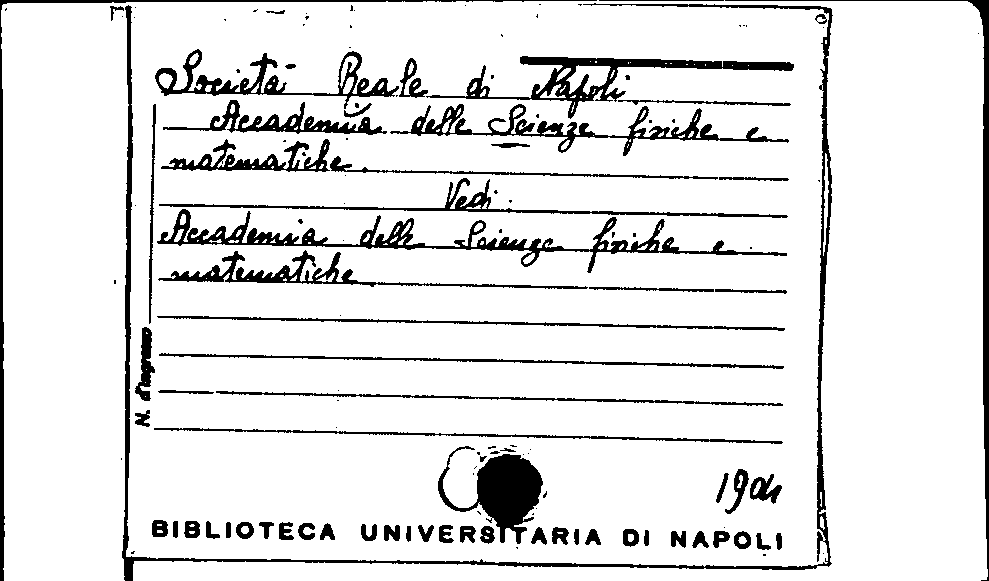 Società Reale di Napoli.
Accademia delle Scienze fisiche e
matematiche.
Vedi:
Accademia delle Scienze fisiche e
matematiche.
N. d'ingresso
BIBLIOTECA UNIVERSITARIA DI NAPOLI